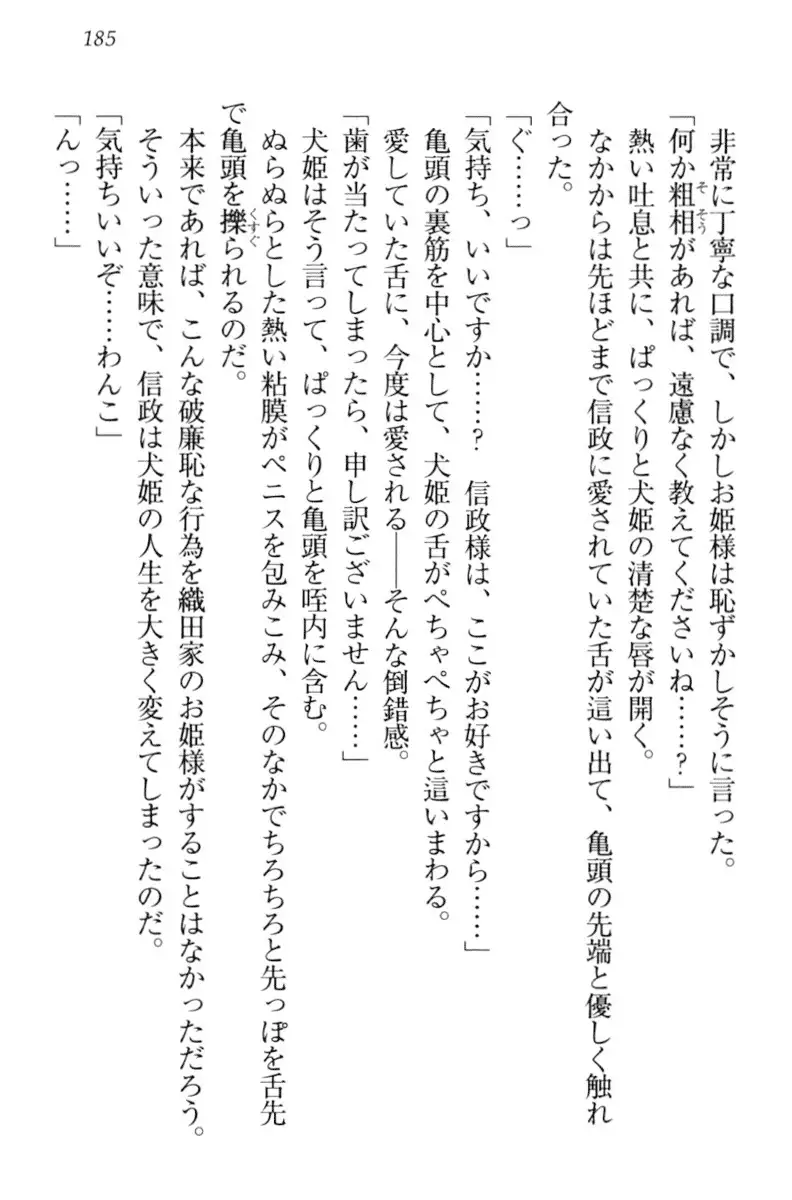 185
非常に丁寧な口調で、しかしお姫様は恥ずかしそうに言った。
「何か粗相があれば、遠慮なく教えてくださいね……？」
そそう
熱い吐息と共に、ぱっくりと犬姫の清楚な唇が開く。
なかからは先ほどまで信政に愛されていた舌が這い出て、亀頭の先端と優しく触れ
合った。
「ぐ……っ」
「気持ち、いいですか……？　信政様は、ここがお好きですから……」
亀頭の裏筋を中心として、犬姫の舌がぺちゃぺちゃと這いまわる。
愛していた舌に、今度は愛される――そんな倒錯感。
「歯が当たってしまったら、申し訳ございません……」
犬姫はそう言って、ぱっくりと亀頭を咥内に含む。
ぬらぬらとした熱い粘膜がペニスを包みこみ、そのなかでちろちろと先っぽを舌先
で亀頭を擽られるのだ。
くすぐ
本来であれば、こんな破廉恥な行為を織田家のお姫様がすることはなかっただろう。
そういった意味で、信政は犬姫の人生を大きく変えてしまったのだ。
「気持ちいいぞ……わんこ」
「んっ……」